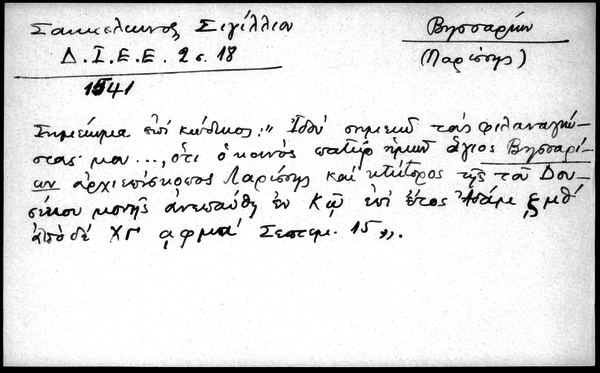 Σακκελίωνος Σιγίλλιον
Βησσαρίων
Δ.Ι.Ε.Ε. 2 σ. 18
(Λαρίσσης)
1541
Σημείωμα ἐπί κώδικος: " Ἰδού σημειῶ τούς φιλαναγνώ-
στας μου ..., ὅτι ὁ κοινός πατήρ ἡμῶν ἅγιος Βησσαρί-
ων ἀρχιεπίσκοπος Λαρίσσης καί κτίτορος τῆς τοῦ Δου-
σίκου μονῆς ἀνεπαύθη ἐν Κῷ ἐπί ἔτος Ἀδάμ ζμθ΄
ἀπό δέ Χῦ αφμα΄ Σεπτεμ. 15 ".